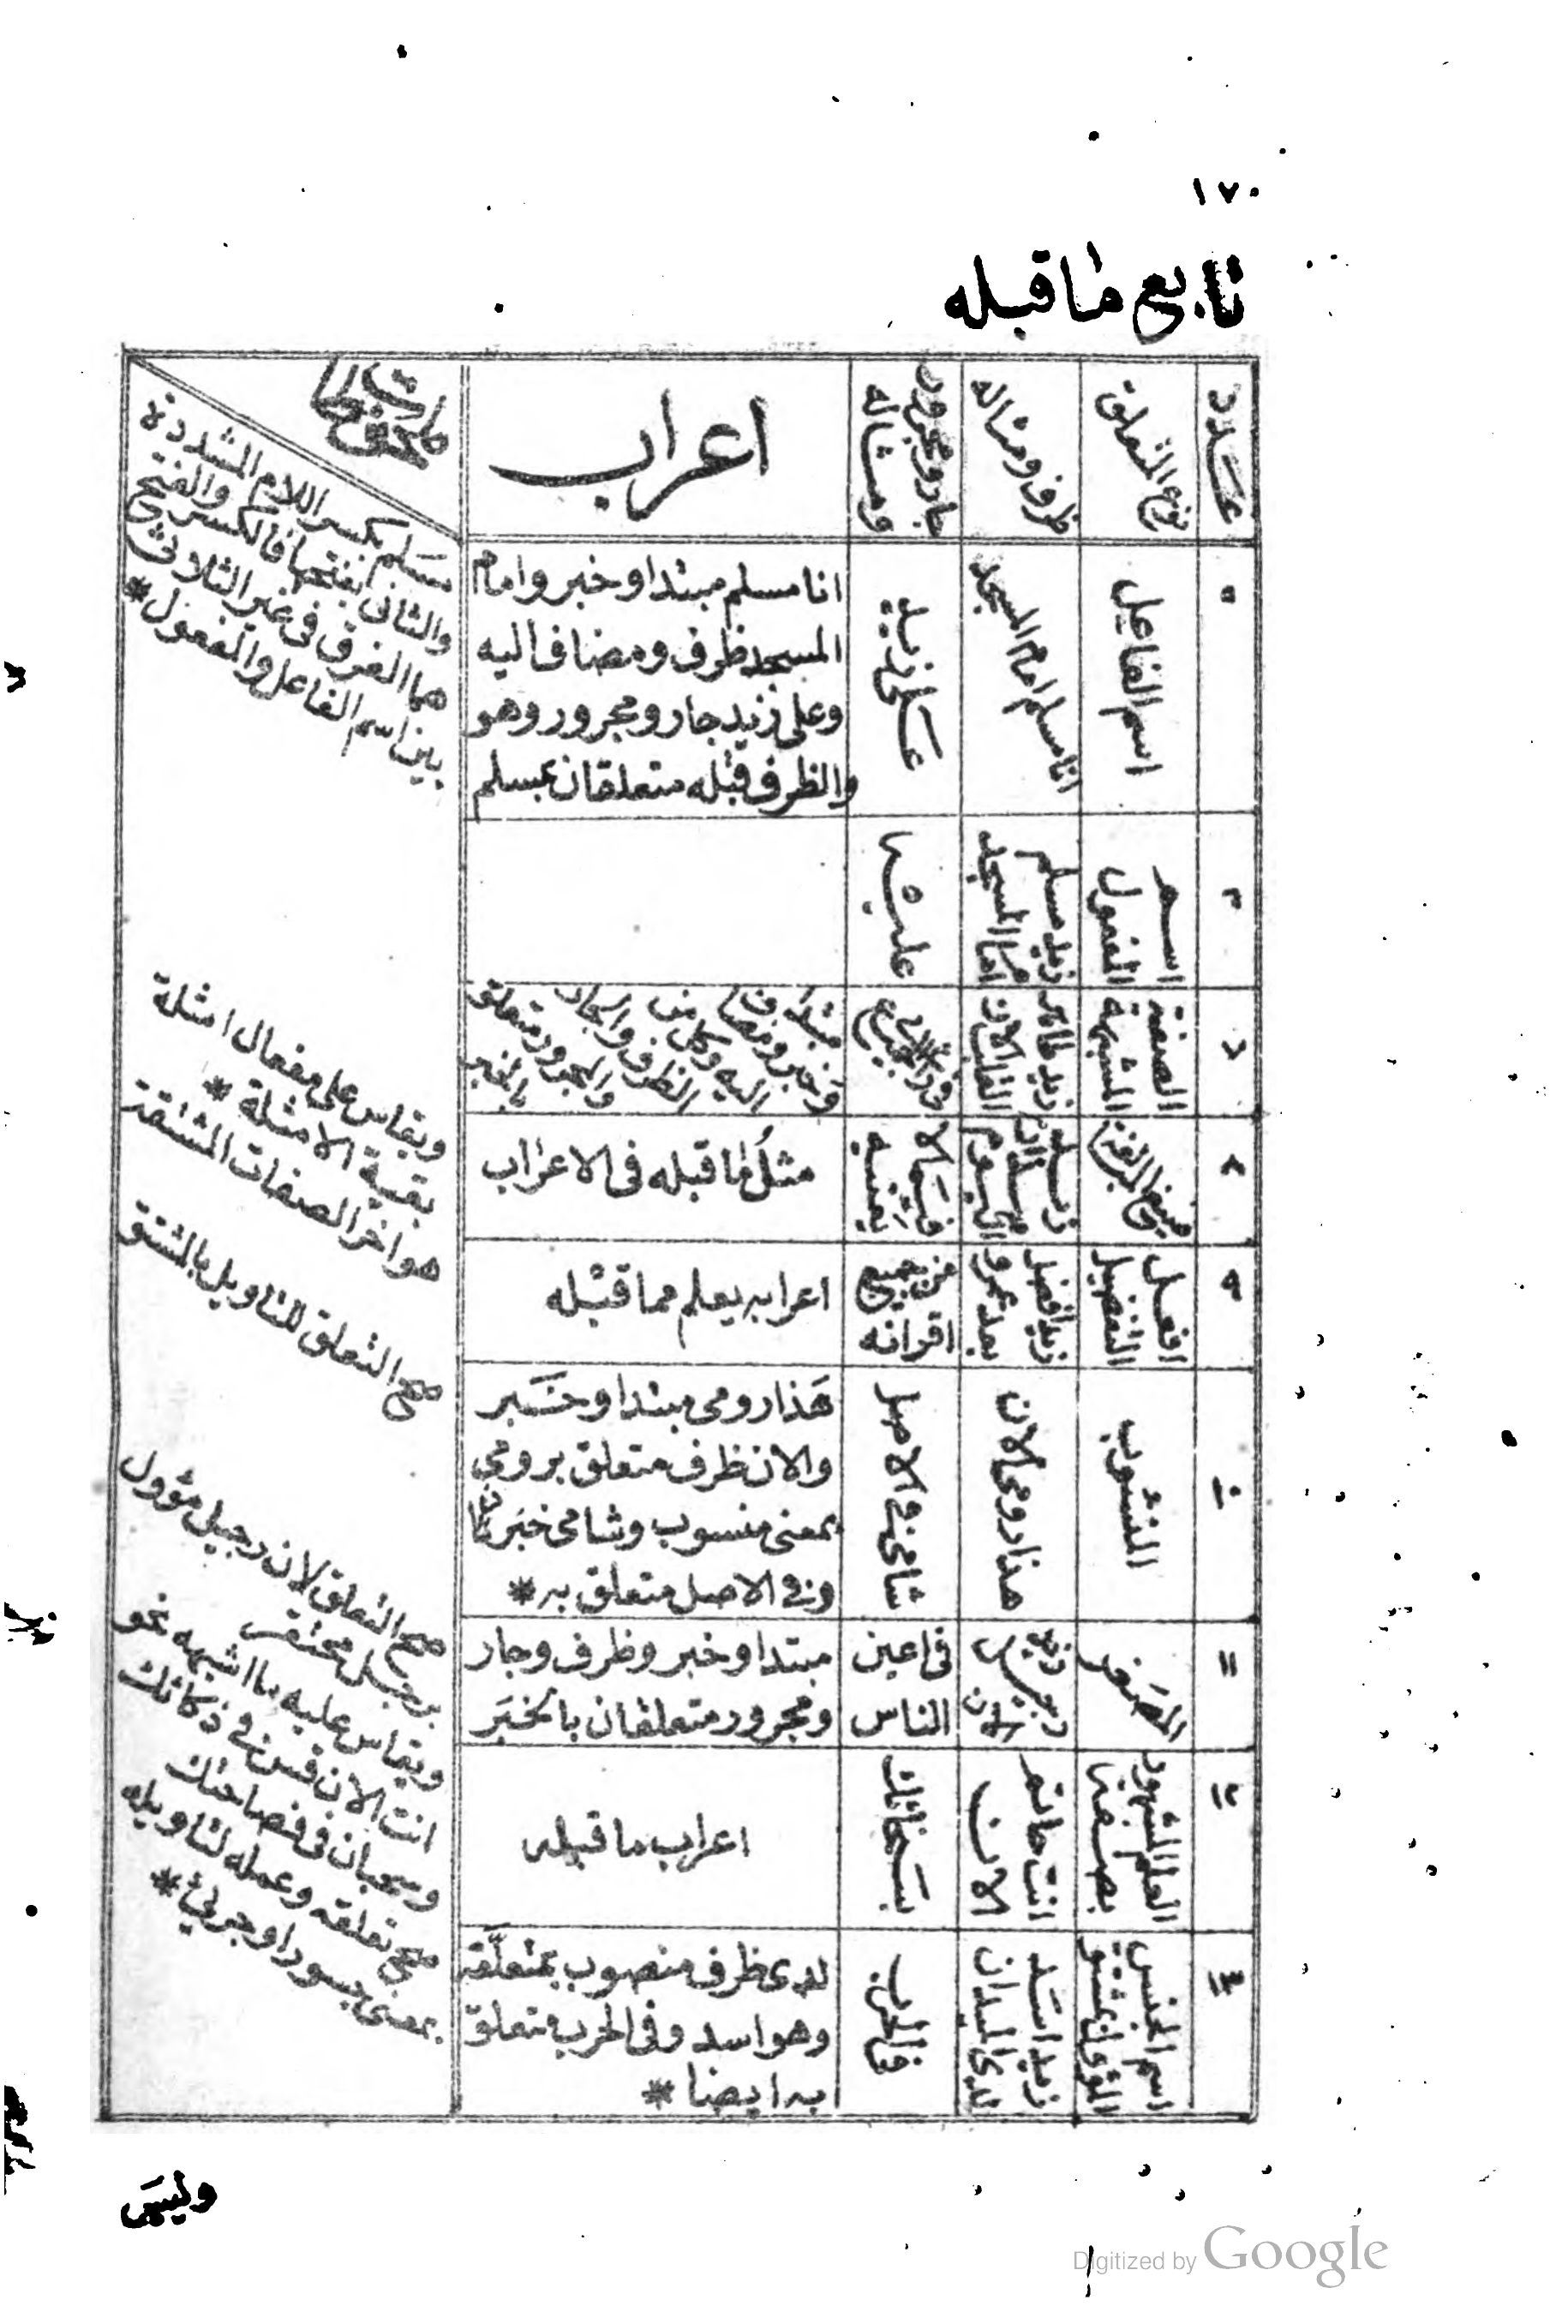 ١٧٠
تابع ما قبله
عدد
نوع المتعلق
ظرف ومثاله
جار ومجرور
ومثاله
اعراب
ملحوظات
٥
اسم الفاعل
انا مسلم امام المسجد
على زيد
انا مسلم مبتدا وخبر وامام
المسجد ظرف ومضاف اليه
وعلى زيد جار ومجرور وهو
والظرف قبله متعلقان بمسلم
مسلم بكسر اللام المشددة
والثانى بفتحها فالكسر والفتح
هما الفرق فى غير الثلاثى
بين اسم الفاعل والمفعول *
٦
اسم
المفعول
زيد مسلم
امام المسجد
عليه
٧
الصفة
المشبهة
زيد طاهر
القلب الان
فى
مبتدا
وخبر ومضاف
اليه وكل من
الظرف والجار
والمجرور متعلق
بالخبر
٨
زيد
اليوم
فيما لا
يعنيه
مثل ما قبله فى الاعراب
ويقاس على مفعال امثلة
بقية الامثلة *
هو اخر الصفات المشتقة
٩
افعل
التفضيل
زيد افضل
بعد عمرو
من جميع
اقرانه
اعرابه يعلم مما قبله
صح التعلق للتاويل بالمشتق
١٠
المنسوب
هذا رومى الان
شامى فى الاصل
هذا رومى مبتدا وخبر
والان ظرف متعلق برومى
بمعنى منسوب وشامى خبر ثان
وفى الاصل متعلق به *
١١
المصغر
زيد
رجيل
الان
فى اعين
الناس
مبتدا وخبر وظرف وجار
ومجرور متعلقان بالخبر
صح التعلق لان رجيل مؤول
برجل محتقر
١٢
العلم المشهور
بصفة
انت حاتم
الان
بسخائك
اعراب ما قبله
ويقاس عليه ما اشبهه نحو
انت الان قس فى ذكائك
وسحبان فى فصاحتك
١٣
اسم الجنس
المؤول بمشتق
زيد اسد
لدى الميدان
فى الحرب
لدى ظرف منصوب بمتعلقه
وهو اسد وفى الحرب متعلق
به ايضا *
صح تعلقه وعمله لتاويله
بمعنى جسور او جرئ *
وليس
Digitized by Google